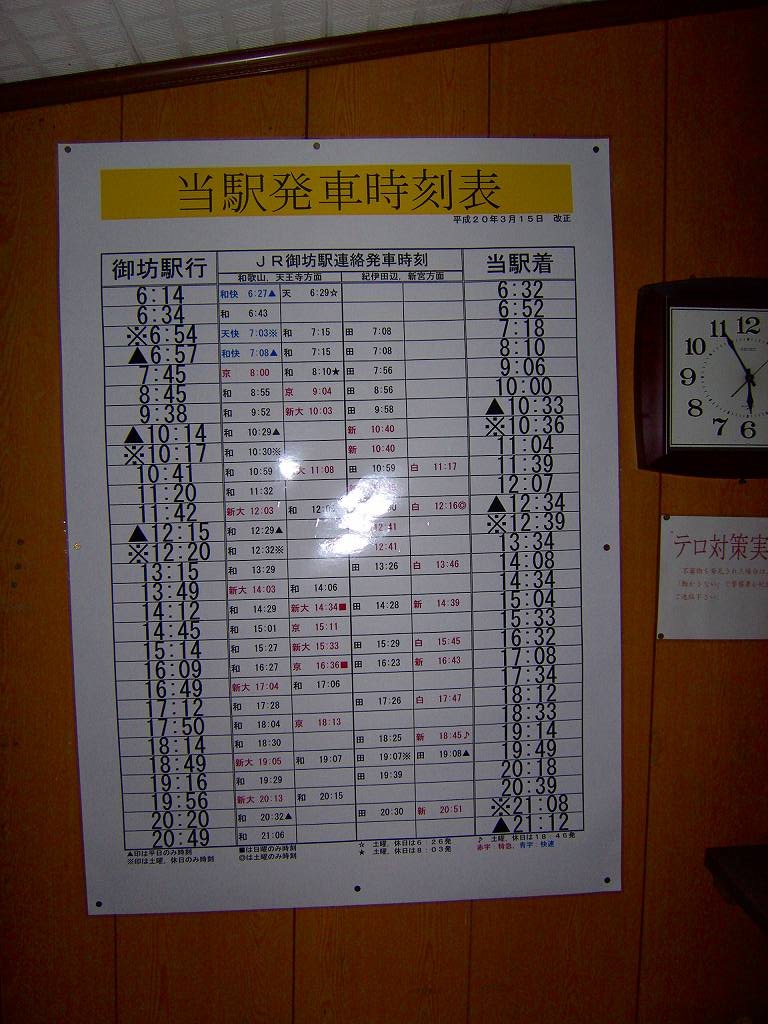 当駅発車時刻表
平成20年3月15日 改正
御坊駅行 JR御坊駅連絡発車時刻 当駅着
和歌山、天王寺方面 紀伊田辺、新宮方面
6:14 和快 6:27▲ 天 6:29☆ 6:32
6:34 和 6:43 6:52
※6:54 天快 7:03※ 和 7:15 田 7:08 7:18
▲6:57 和快 7:08▲ 和 7:15 田 7:08 8:10
7:45 京 8:00 和 8:10★ 田 7:56 9:06
8:45 和 8:55 京 9:04 田 8:56 10:00
9:38 和 9:52 新大 10:03 田 9:58 ▲10:33
▲10:14 和 10:29▲ 新 10:40 ※10:36
※10:17 和 10:30※ 新 10:40 11:04
10:41 和 10:59 大 11:08 田 10:59 白 11:17 11:39
11:20 和 11:32 12:07
11:42 新大 12:03 和 白 12:16◎ ▲12:34
▲12:15 和 12:29▲ 12:41 ※12:39
※12:20 和 12:32※ 12:41 13:34
13:15 和 13:29 田 13:26 白 13:46 14:08
13:49 新大 14:03 和 14:06 14:34
14:12 和 14:29 新大 14:34■ 田 14:28 新 14:39 15:04
14:45 和 15:01 京 15:11 15:33
15:14 和 15:27 新大 15:33 田 15:29 白 15:45 16:32
16:09 和 16:27 京 16:36■ 田 16:23 新 16:43 17:08
16:49 新大 17:04 和 17:06 17:34
17:12 和 17:28 田 17:26 白 17:47 18:12
17:50 和 18:04 京 18:13 18:33
18:14 和 18:30 田 18:25 新 18:45♪ 19:14
18:49 新大 19:05 和 19:07 田 19:07※ 田 19:08▲ 19:49
19:16 和 19:29 田 19:39 20:18
19:56 新大 20:13 和 20:15 20:39
20:20 和 20:32▲ 田 20:30 新 20:51 ※21:08
20:49 和 21:06 ▲21:12
▲印は平日のみ時刻 ■は日曜のみ時刻 ☆ 土曜、休日は6:26発 ♪ 土曜、休日は18:46発
※印は土曜、休日のみ時刻 ◎は土曜のみ時刻 ★ 土曜、休日は8:03発 赤字:特急、青字:快速
11 12
10
9
8
7 6
テロ対策実